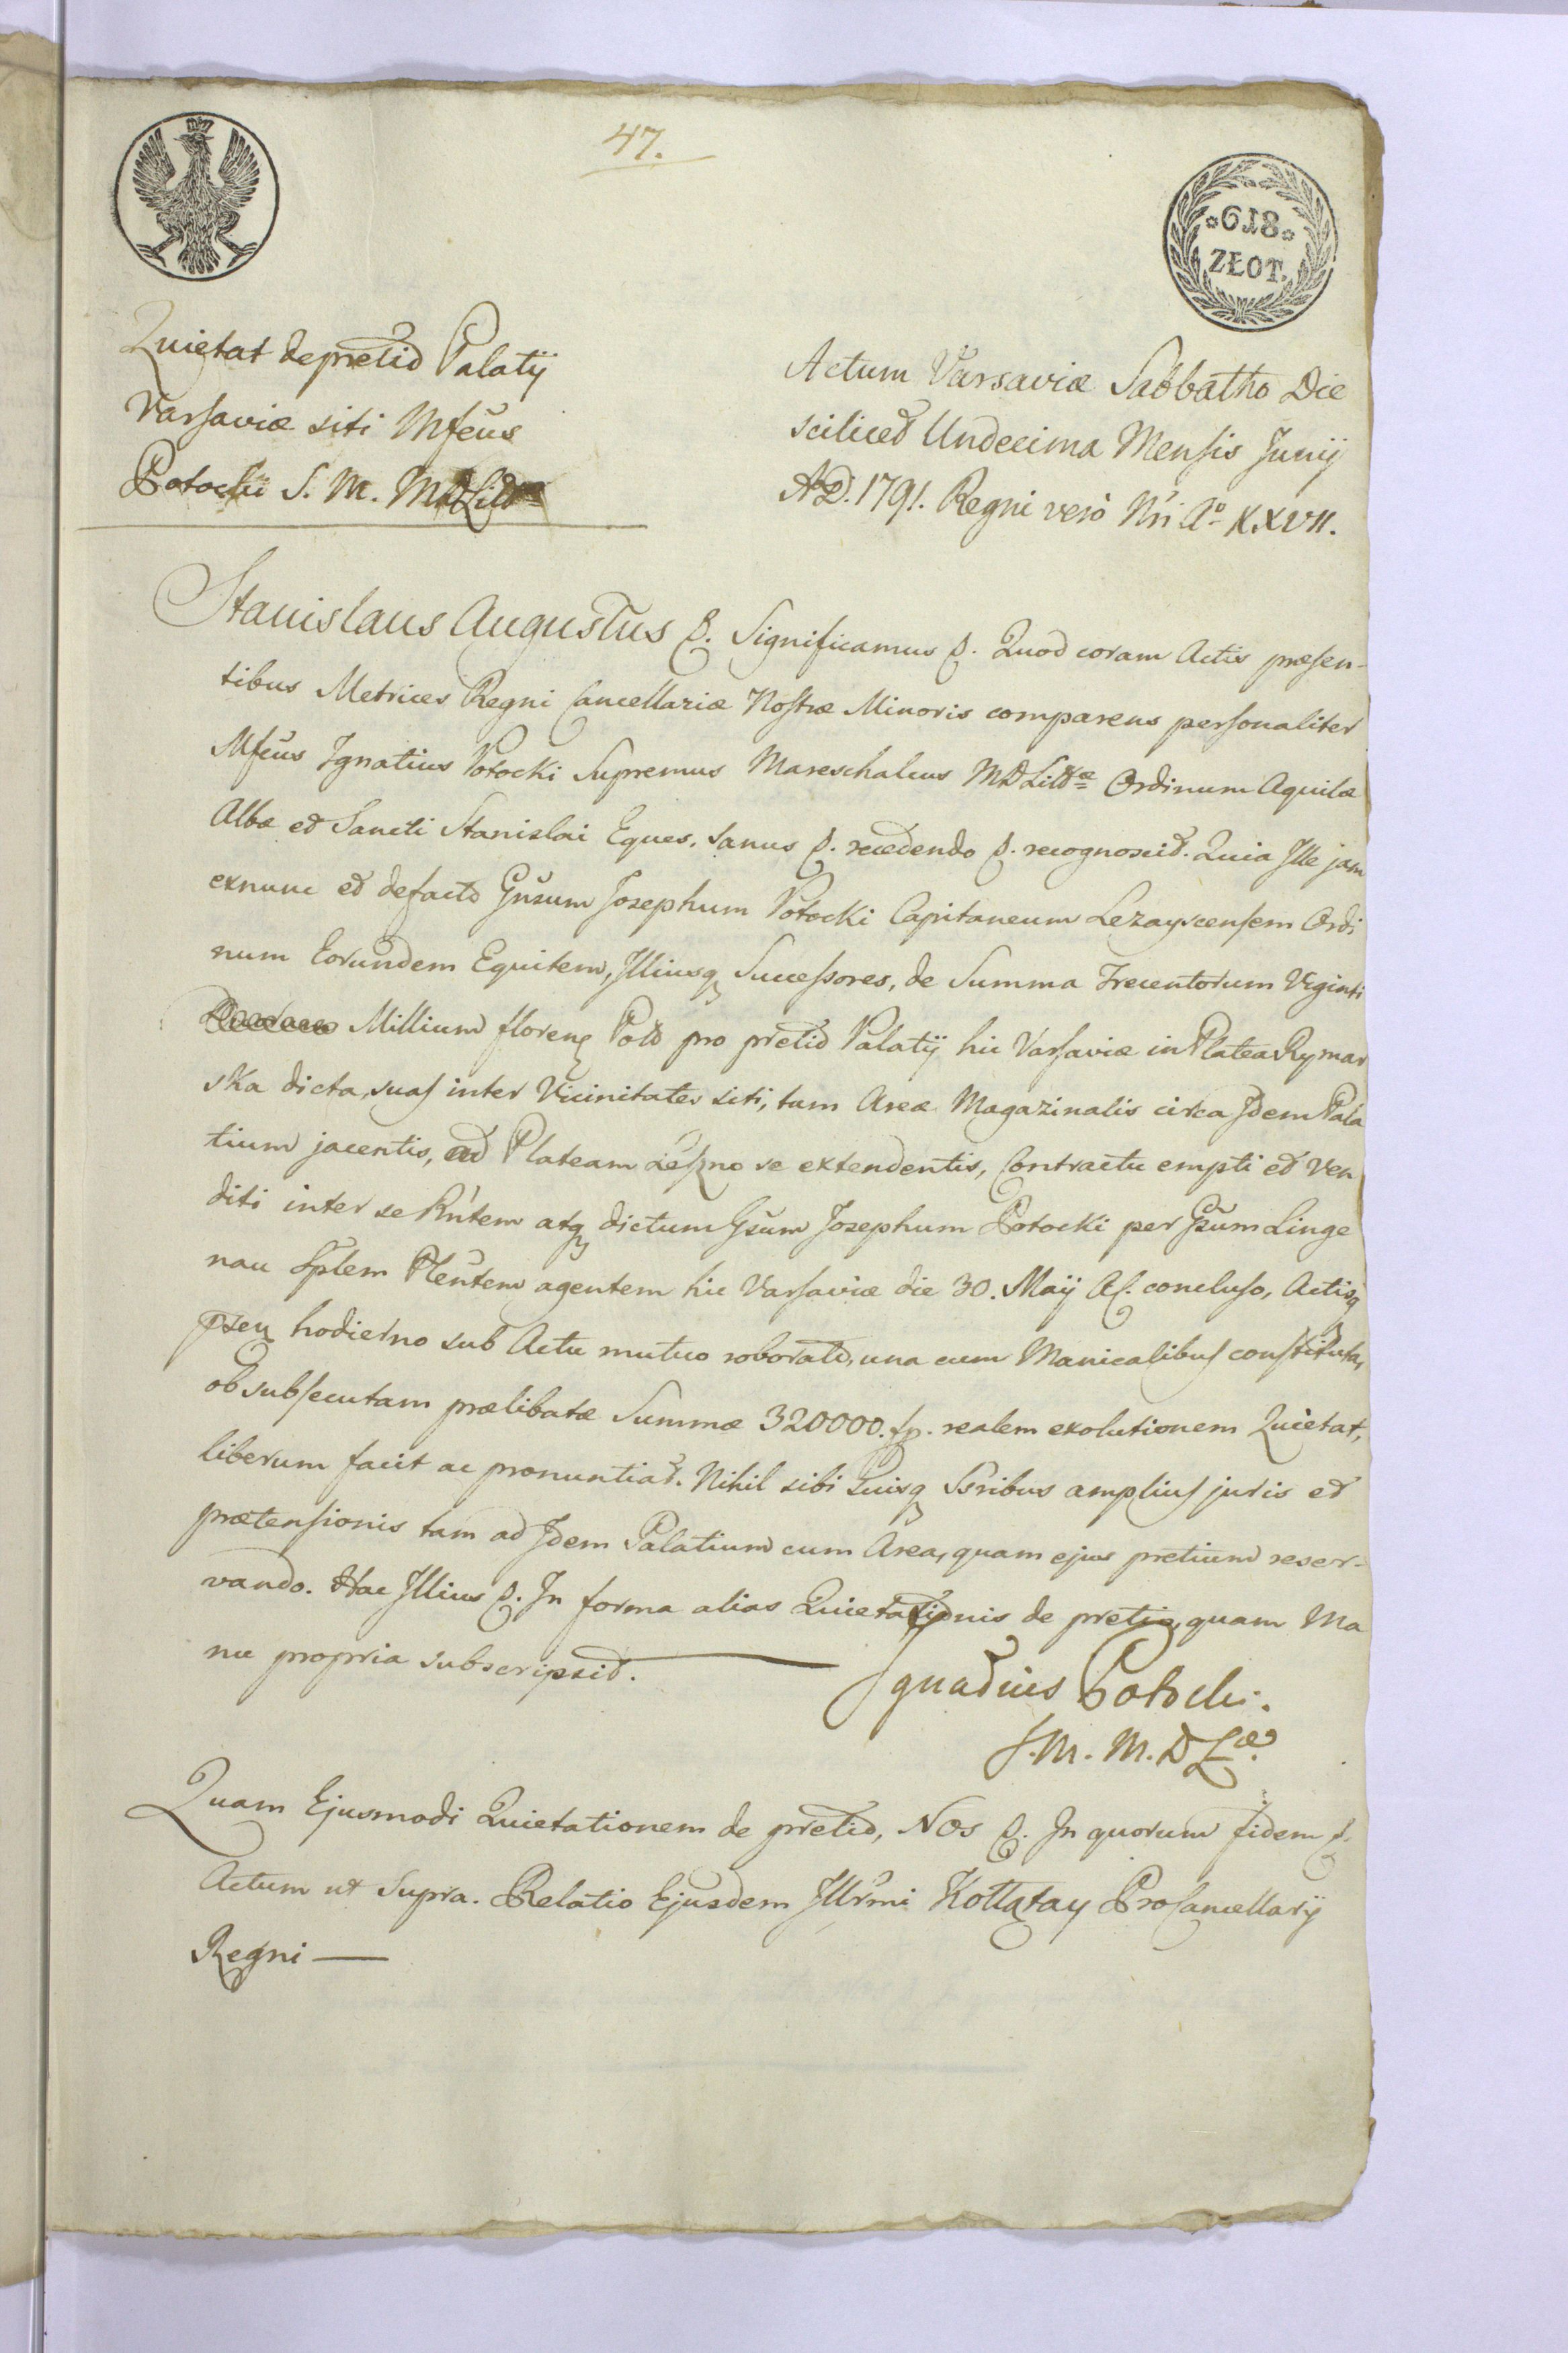 47.
618
ZŁOT.
Quietat de pretio Palatij
Varsaviæ siti Mfcus
Potocki S. M. MDLitt
Actum Varsaviæ Sabbatho Die
scilicet Undecima Mensis Junij
AD. 1791. Regni verò Nri Aº XXVII.
Stanislaus Augustus &. Significamus &. Quod coram Actis præsen-
tibus Metrices Regni Cancellariæ Nostræ Minoris comparens personaliter
Mfcus Ignatius Potocki Supremus Mareschalcus MDLittæ Ordinum Aquilæ
Albæ et Sancti Stanislai Eques, sanus &. recedendo &. recognovit. Quia Ille jam
exnunc et defacto Gnsum Josephum Potocki Capitaneum Lezayscensem Ordi
num Eorundem Equitem, Illiusq Successores, de Summa Trecentorum Viginti
Millium floren Pold pro pretio Palatij hic Varsaviæ in Platea Rymar
ska dicta, suas inter Vicinitates siti, tum Areæ Magazinalis circa Idem Pala
tium jacentis, ad Plateam Leszno se extendentis, Contractu empti et ven
diti inter se Rntem atq dictum Gsum Josephum Potocki per Gsum Linge
nau Splem Plentem agentem hic Varsaviæ die 30. Maij A. concluso, Actisq
psen hodierno sub Actu mutuo roborato, una cum Manicalibus constituta,
ob subsecutam prælibatæ Summæ 320000. fp. realem exolutionem Quietat,
liberum facit ac pronuntiat. Nihil sibi Suisq Ssribus amplius juris et
prætensionis tam ad Idem Palatium cum Area, quam ejus pretium reser-
vando. Hac Illius &. In forma alias Quietationis de pretio, quam Ma
nu propria subscripsit.
Ignatius Potocki.
S. M. M. D Læ.
Quam Ejusmodi Quietationem de pretio, Nos &. In quorum fidem &.
Actum ut Supra. Relatio Ejusdem Illrmi Kołłątay ProCancellarij
Regni —